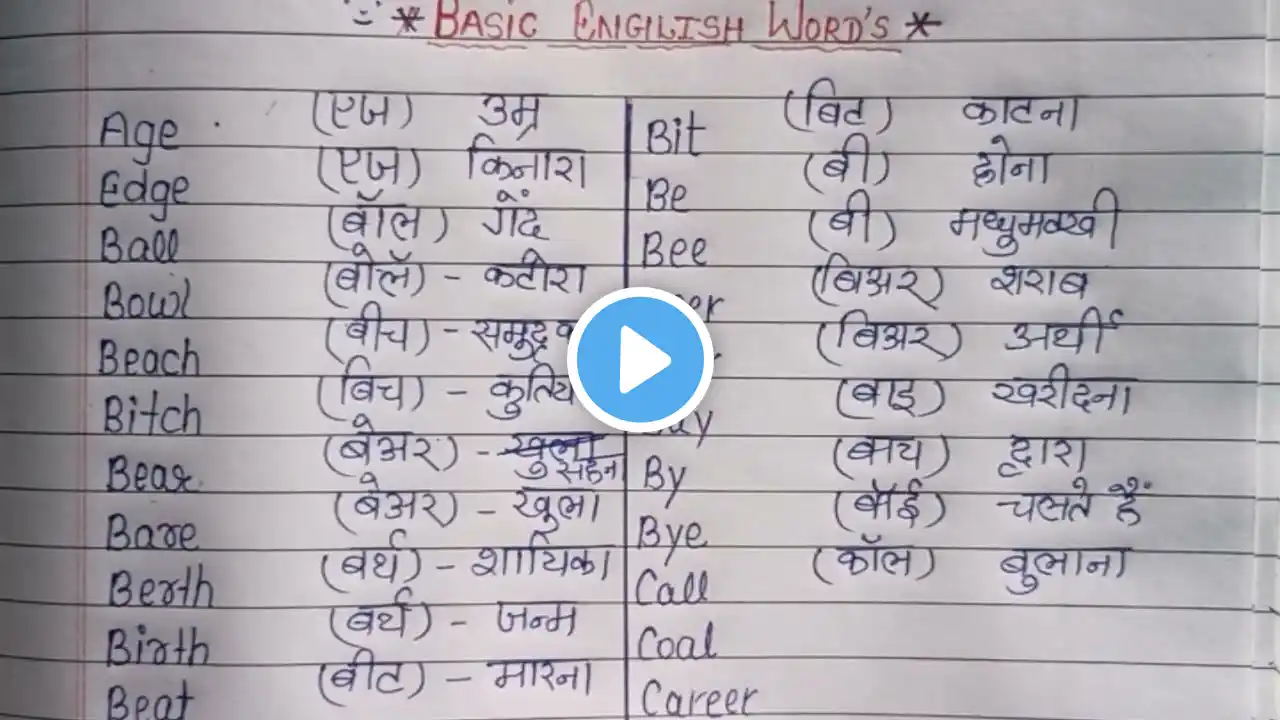 * BASIC ENGILISH WORD'S *
Age (एज) उम्र
Edge (एज) किनारा
Ball (बॉल) गेंद
Bowl (बोलॅ) - कटोरा
Beach (बीच) - समुद्र
Bitch (बिच) -
Bear (बेअर) - सहना
Bare (बेअर) - खुला
Berth (बर्थ) - शायिका
Birth (बर्थ) - जन्म
Beat (बीट) - मारना
Bit (बिट) काटना
Be (बी) होना
Bee (बी) मधुमक्खी
(बिअर) शराब
(बिअर) अर्थी
(बाइ) खरीदना
By (बाय) द्वारा
Bye (बॉई) चलते हैं
Call (कॉल) बुलाना
Coal
Career